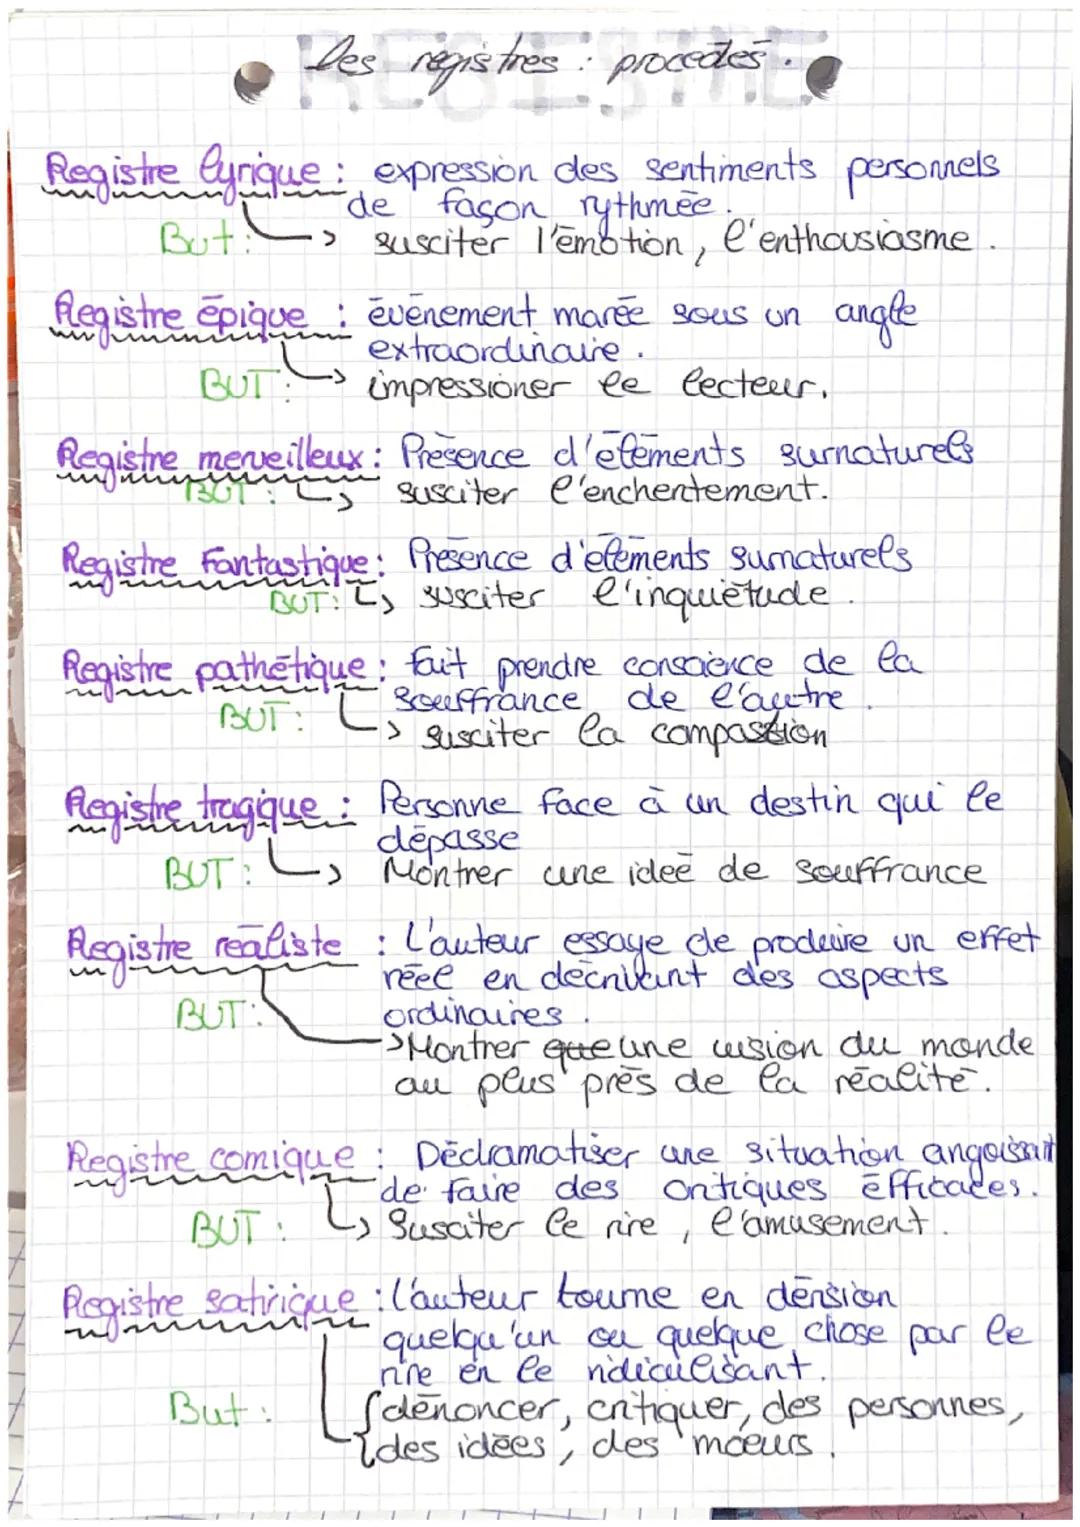 Les registres : procédés.
Registre lyrique : expression des sentiments personnels
de façon rythmée.
But : -> susciter l'émotion, l'enthousiasme.
Registre épique : événement marée sous un angle
extraordinaire.
BUT : -> impressioner le lecteur.
Registre merveilleux : Présence d'éléments surnaturels
BUT : -> susciter l'enchentement.
Registre Fantastique : Présence d'éléments surnaturels
BUT : -> susciter l'inquiétude.
Registre pathétique : fait prendre conscience de la
souffrance de l'autre.
BUT : -> susciter la compassion
Registre tragique : Personne face à un destin qui le
dépasse
BUT : -> Montrer une ideé de souffrance
Registre réaliste : L'auteur essaye de produire un effet
réel en décrivant des aspects
BUT : ordinaires.
-> Montrer une vision du monde
au plus près de la réalité.
Registre comique : Dédramatiser une situation angoissant
de faire des critiques efficaces.
BUT : -> Susciter le rire, l'amusement.
Registre satirique : L'auteur tourne en dérision
quelqu'un ou quelque chose par le
rire en le ridiculisant.
But : dénoncer, critiquer, des personnes,
des idées, des moeurs.